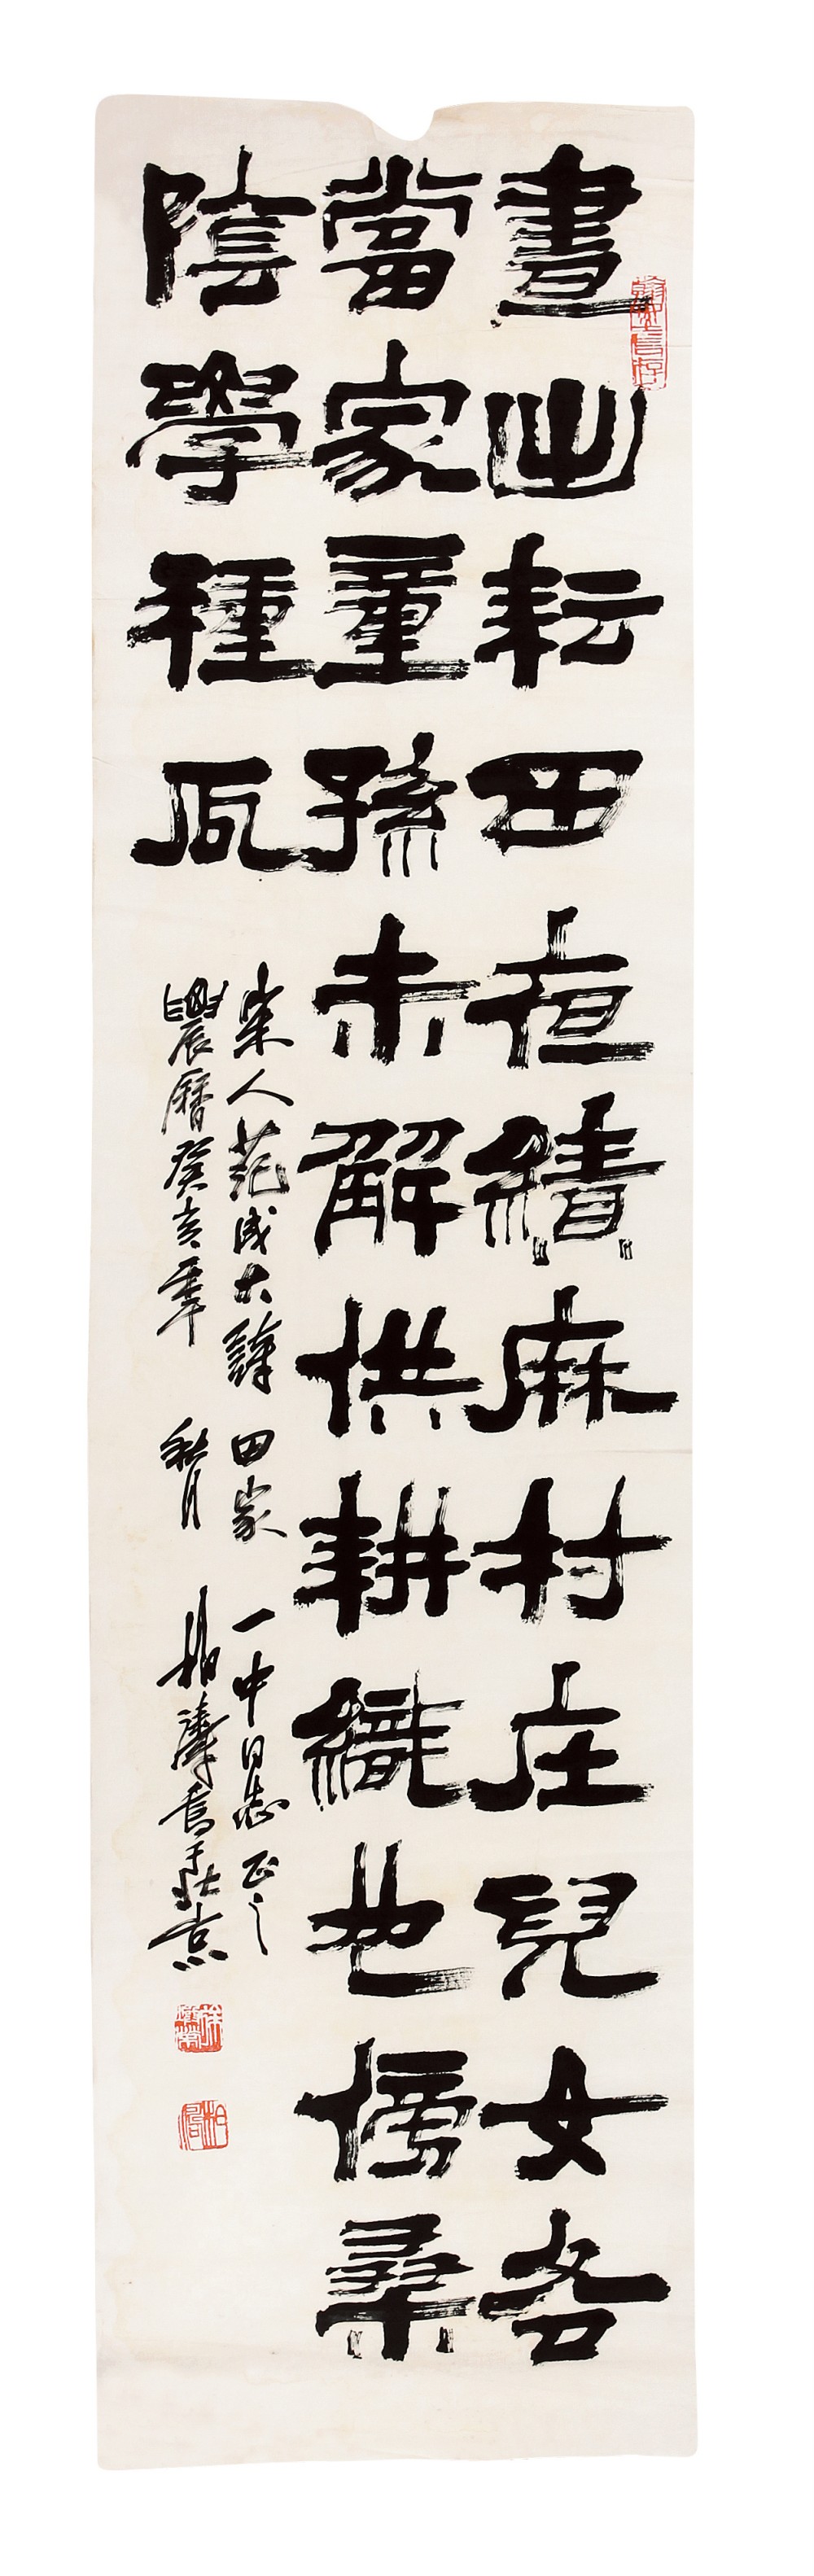 晝出耘田夜績麻村庄兒女各
當家童孫未解供耕織也傍桑
陰學種瓜
宋人范成大詩 田家 一中同志正之
農曆癸亥年 秋月 柏濤書于北京